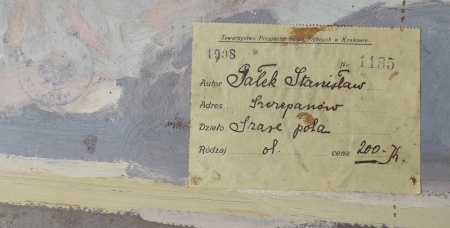 Towarzystwo Przyjaciół Sztuk Pięknych w Krakowie.
1938 Nr. 1185
Autor Gałek Stanisław
Adres Szczepanów
Dzieło Szare pola
Rodzaj ol. cena 200.-